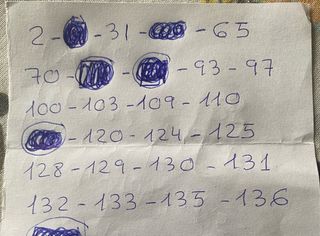 2 - - 31 - - 65
70 - - - 93 - 97
100 - 103 - 109 - 110
- 120 - 124 - 125
128 - 129 - 130 - 131
132 - 133 - 135 - 136